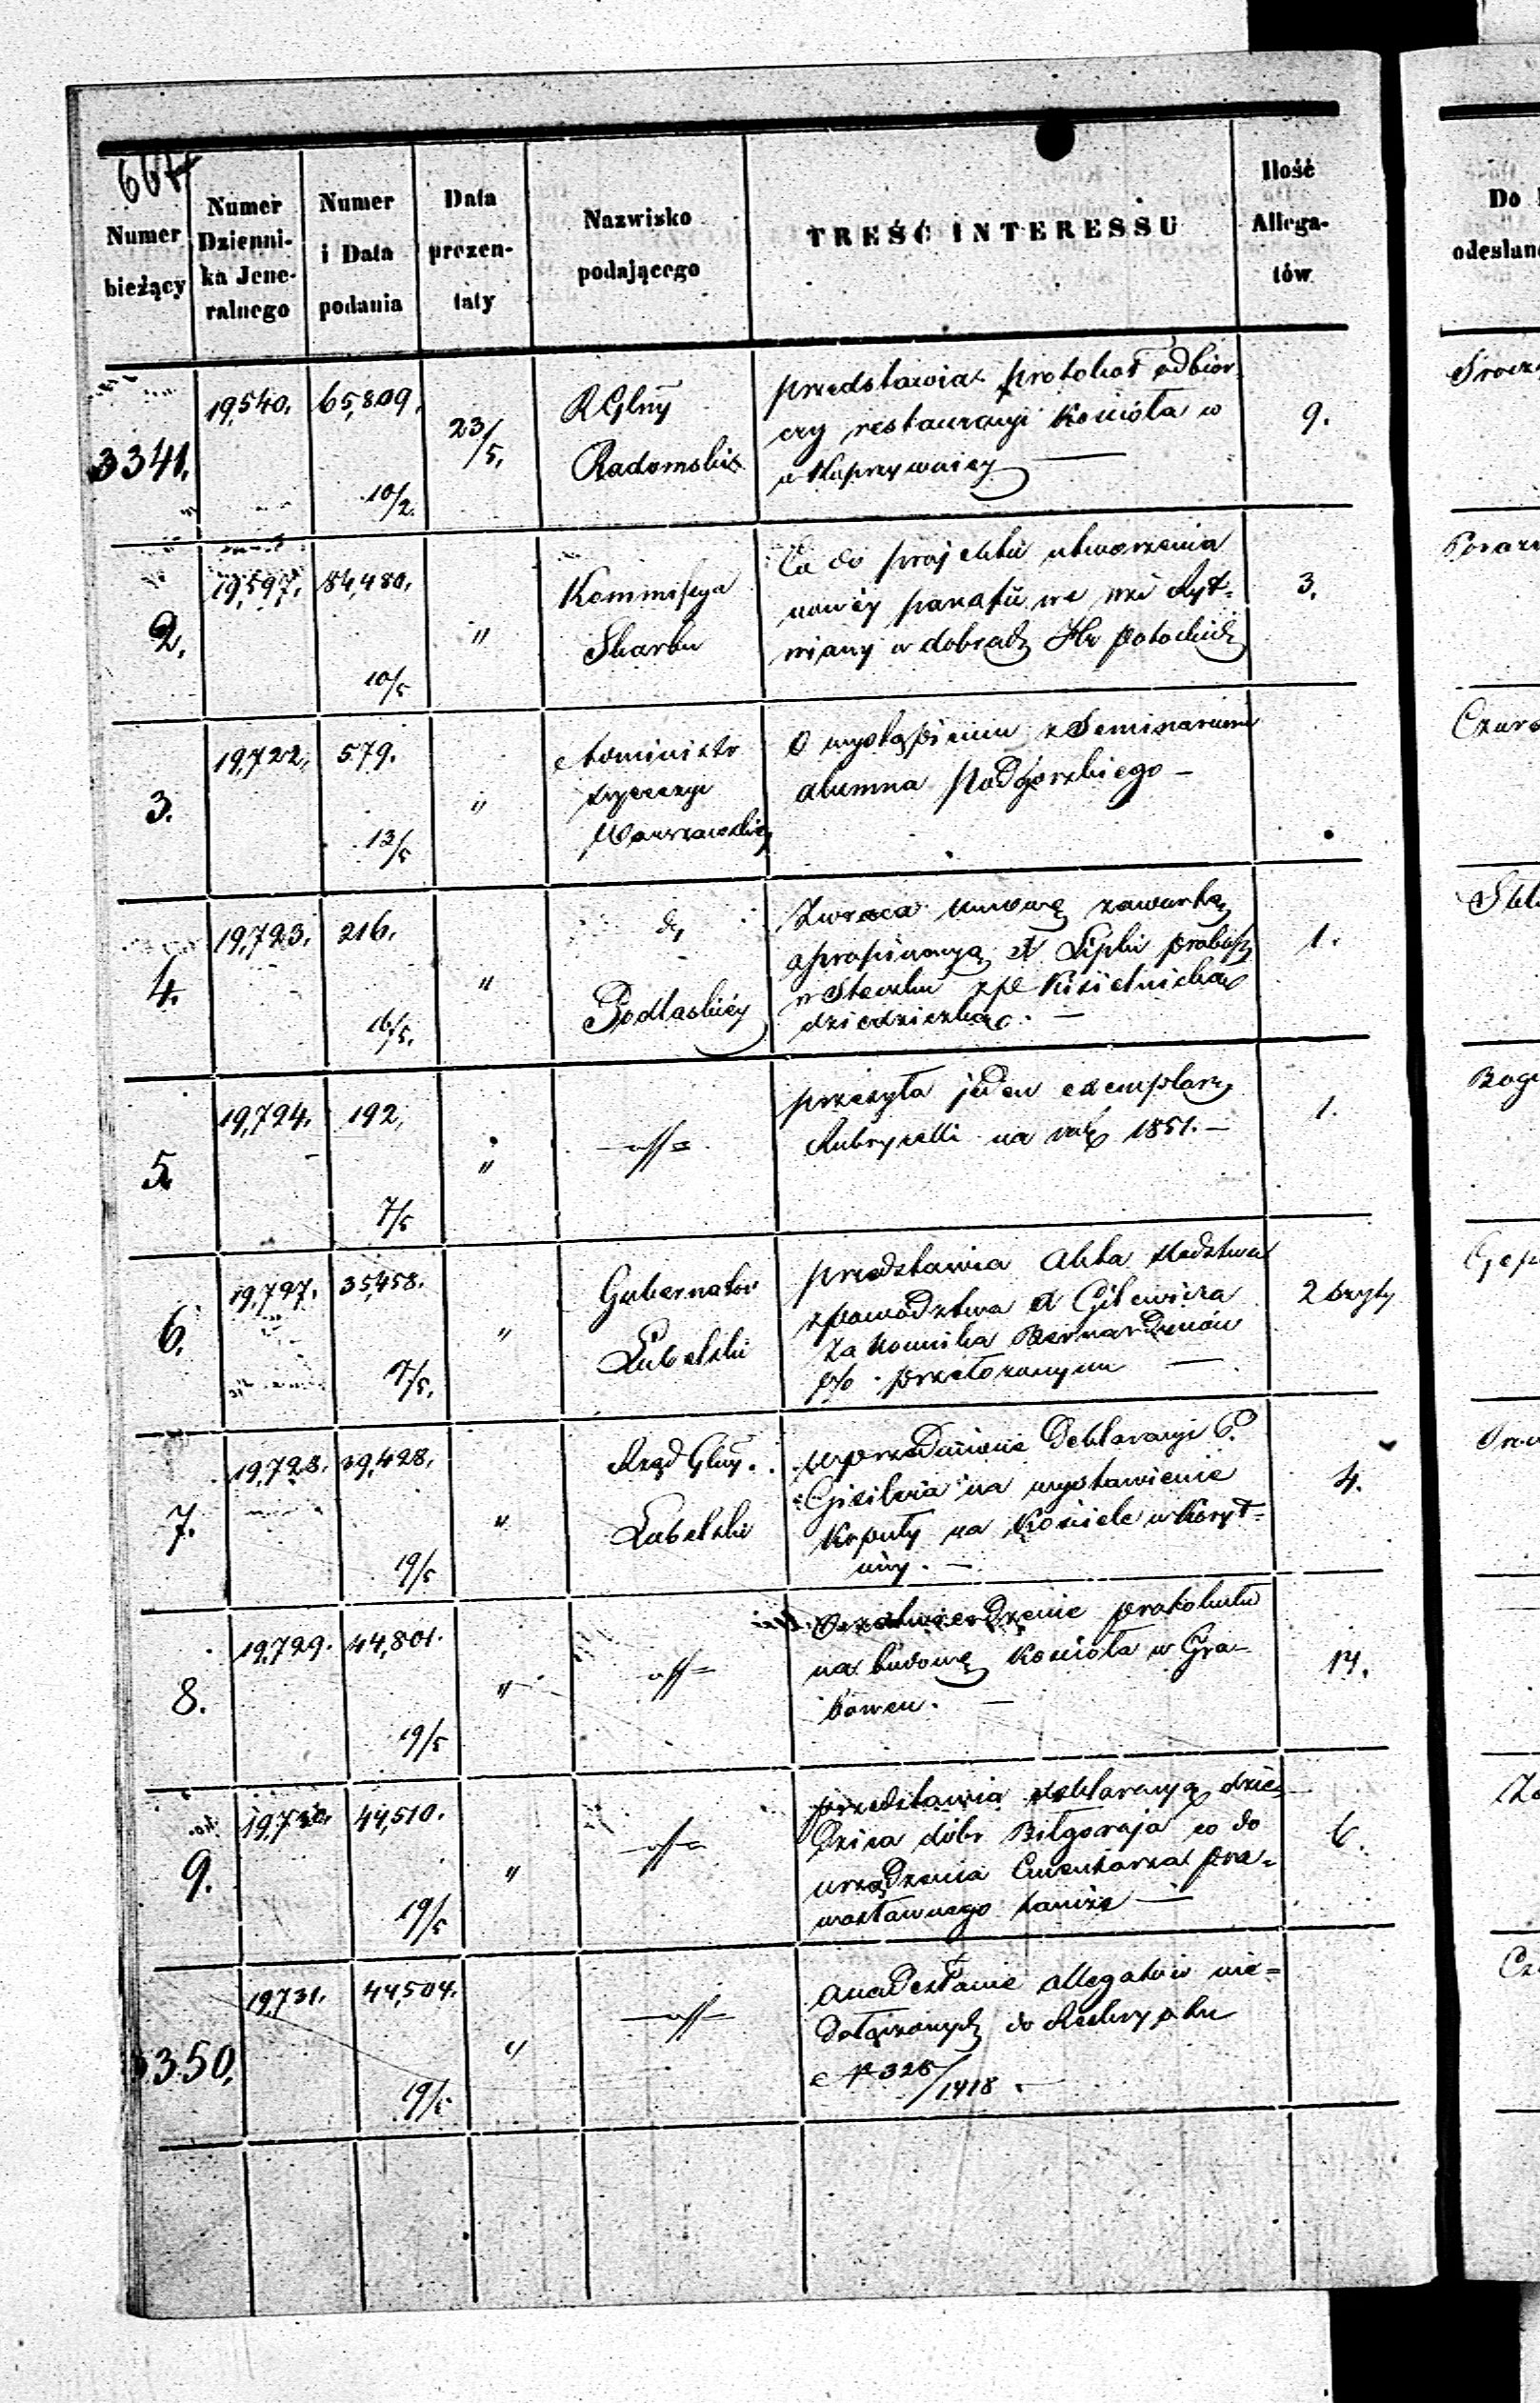 667
Numer bieżący
Numer Dziennika Jeneralnego
Numer i Data podania
Data prezentaty
Nazwisko podającego
TREŚĆ INTERESSU
Ilość Allegatów
3341. 19,540. 65,809. 10/2. 23/5.
RGlny
Radomski
przedstawia protokoł odbior-
czy restauracyi Kościoła w
9.
2. 19,597. 84,480. 10/5 "
Kommissya
Skarbu
Co do projektu utworzenia
nowéj parafii we wsi Ryt-
wiany w dobrach Hr Potockich
3.
3. 19,722. 579. 13/5 "
Administr
Dyecezyi
Warszawskiej
O wystąpieniu z Seminarium
alumna Podgorskiego –
4. 19,723. 216. 16/5. "
do
Podlaskiéj
Zwraca umowę zawartą
X Lipki probosz
w Steczku
dziedziczką. –
1.
5. 19,724. 192. 7/5 "
przesyła jeden exemplarz
Rubrycelli na rok 1851. –
1.
6. 19,727. 35,458. 17/5. "
Gubernator
Lubelski
przedstawia Akta śledztwa
z powództwa X Gilewicza
Zakonnika Bernardynów
p/o przełożonym —
2 szyty
7. 19,728. 39,428. 19/5 "
Rząd Glny.
Lubelski
Deklaracyi P.
na wystawienie
Kopuły na Kościele w Koryt-
nicy. –
4.
8. 19,729. 44,801. 19/5 "
O zatwierdzenie protokułu
na budowę Kościoła w Gra-
bowcu. –
14.
9. 19,730. 44,510. 19/5 "
przedstawia deklaracyą dzie-
dzica dóbr Biłgoraja co do
urządzenia Cmentarza pra-
wosławnego tamże —
6.
3350. 19,731. 44,504. 19/5 "
O nadesłanie allegatów nie-
dołączonych do Reskryptu
N 328/1418 . —
Do
odesłan